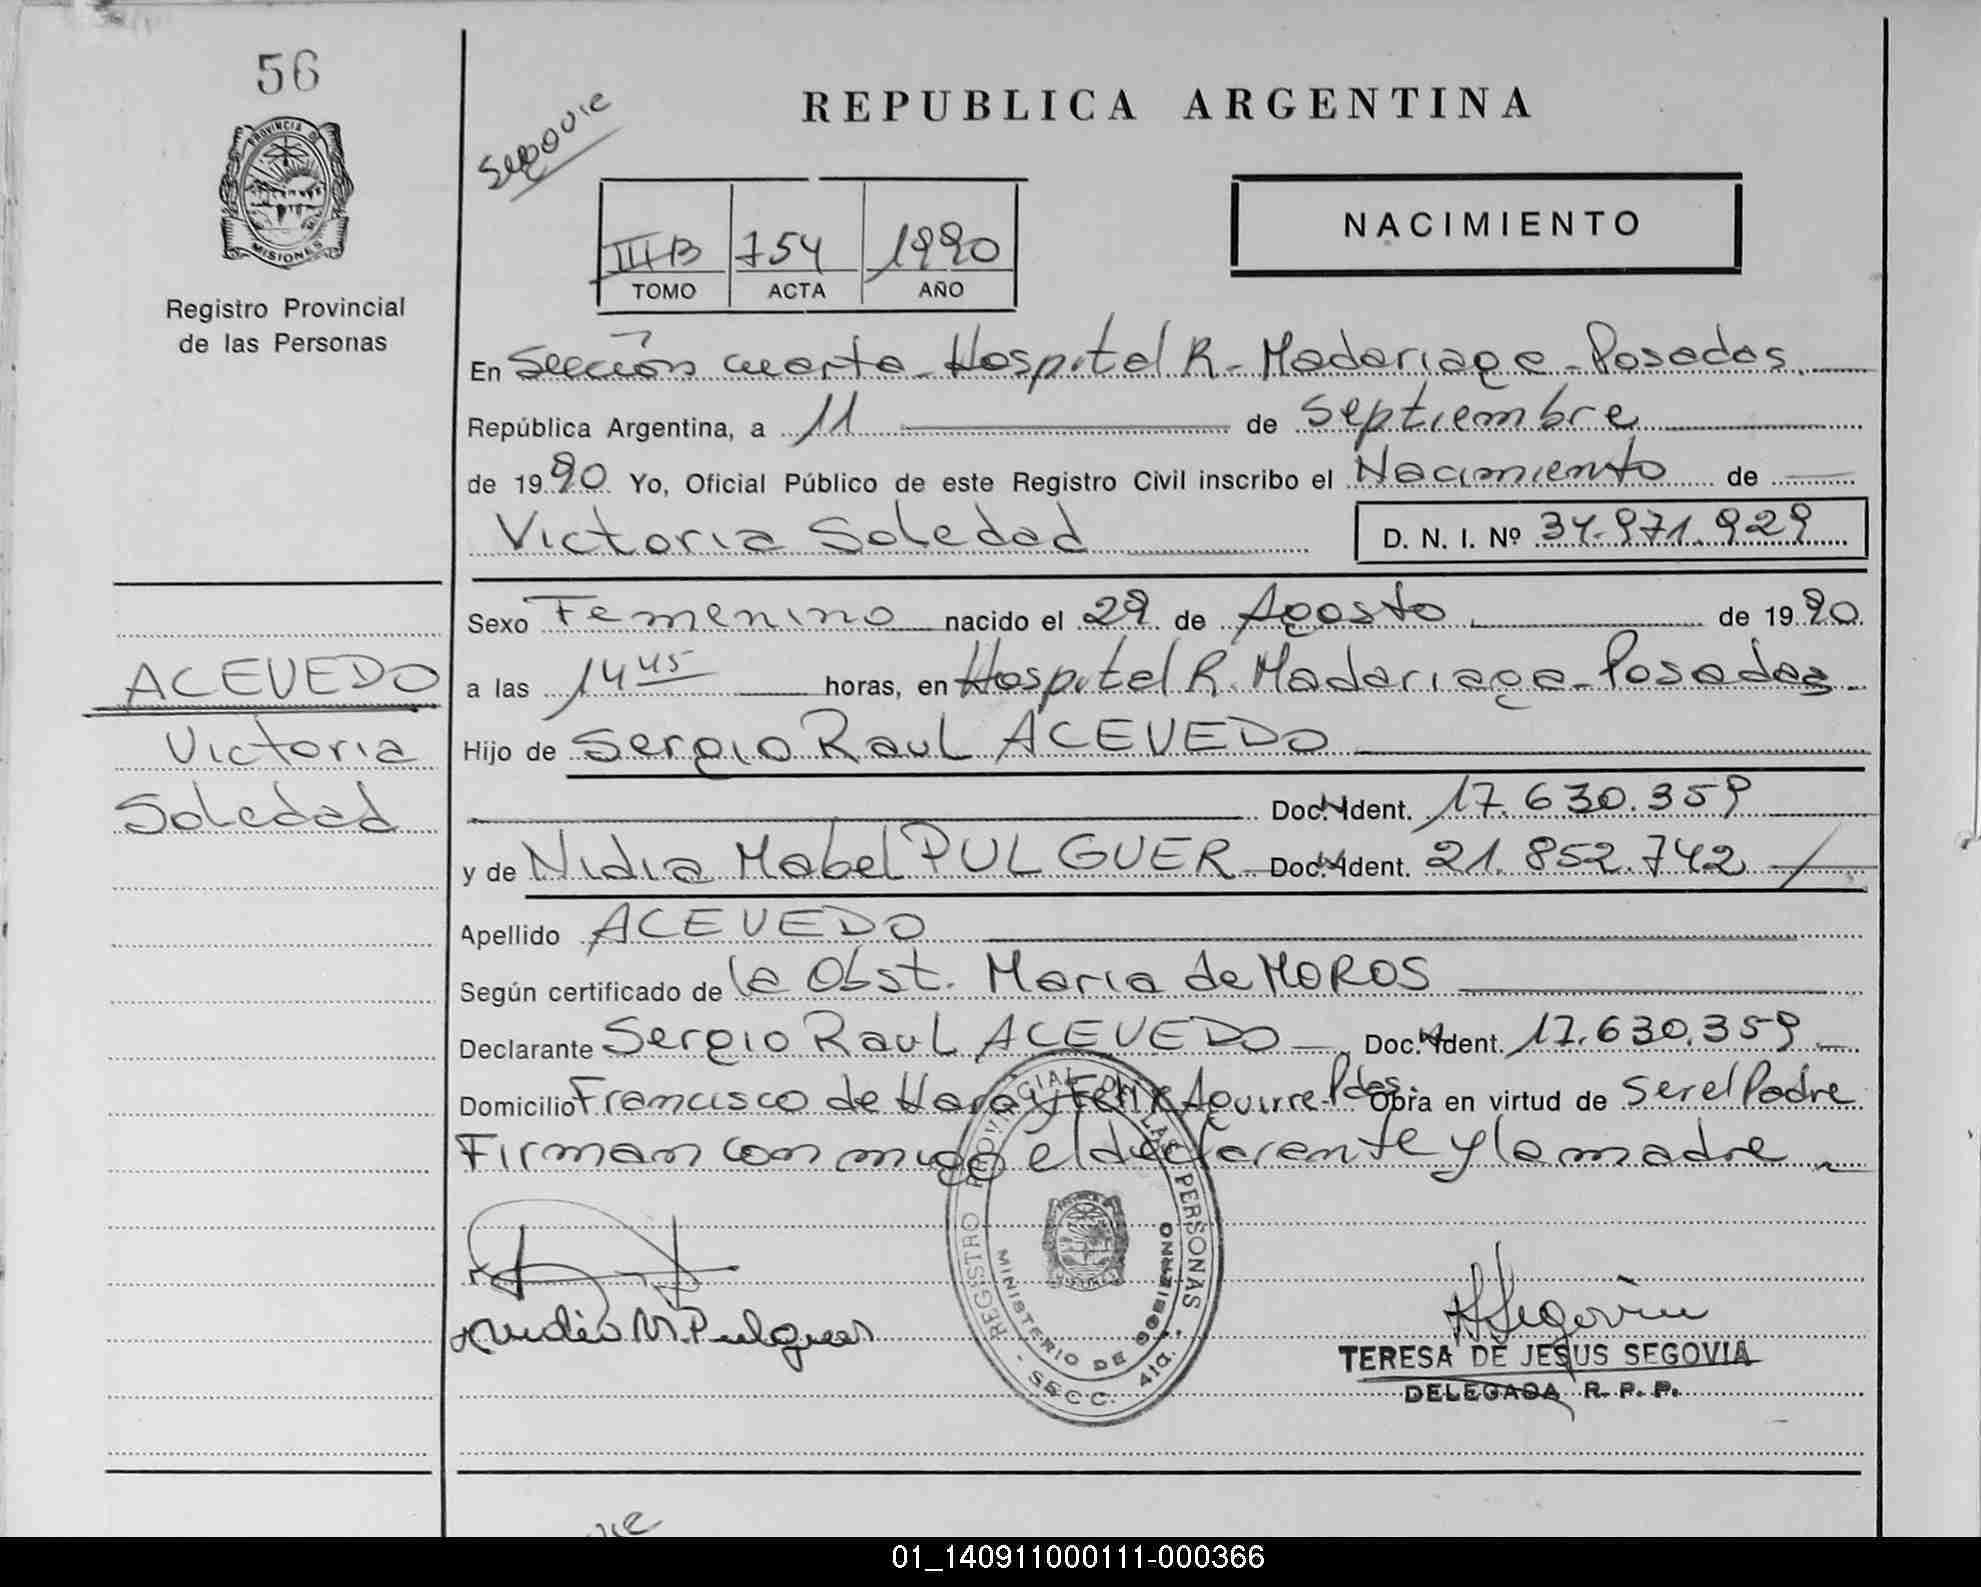 56
PROVINCIA DE
MISIONES
Registro Provincial
de las Personas
Segovia
REPUBLICA ARGENTINA
NACIMIENTO
III B 754 1990
TOMO ACTA AÑO
En Sección cuarta - Hospital R. Madariaga - Posadas
República Argentina, a 11 de Septiembre
de 1990 Yo, Oficial Público de este Registro Civil inscribo el Nacimiento de
Victoria Soledad D. N. I. Nº 34.971.929
Sexo Femenino nacido el 29 de Agosto de 1990
a las 14 45 horas, en Hospital R. Madariaga - Posadas
Hijo de Sergio Raul ACEVEDO
Doc. Ident. 17.630.359
y de Nidia Mabel PULGUER Doc. Ident. 21.852.742
Apellido ACEVEDO
Según certificado de la Obst. Maria de MOROS
Declarante Sergio Raul ACEVEDO Doc. Ident. 17.630.359
Domicilio Francisco de Haro y Felix Aguirre - Pdas. Obra en virtud de Ser el Padre
Firman conmigo el declarante y la madre
ACEVEDO
Victoria
Soledad
REGISTRO PROVINCIAL DE LAS PERSONAS
MINISTERIO DE GOBIERNO
- SECC. 4ta. -
Nidia M. Pulguer
Segovia
TERESA DE JESUS SEGOVIA
DELEGADA R. P. P.
01_140911000111-000366